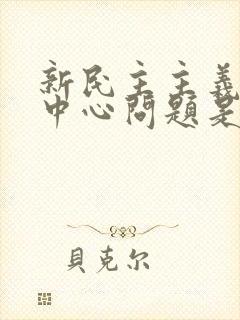 新民主主義
中心問題是
貝克尔